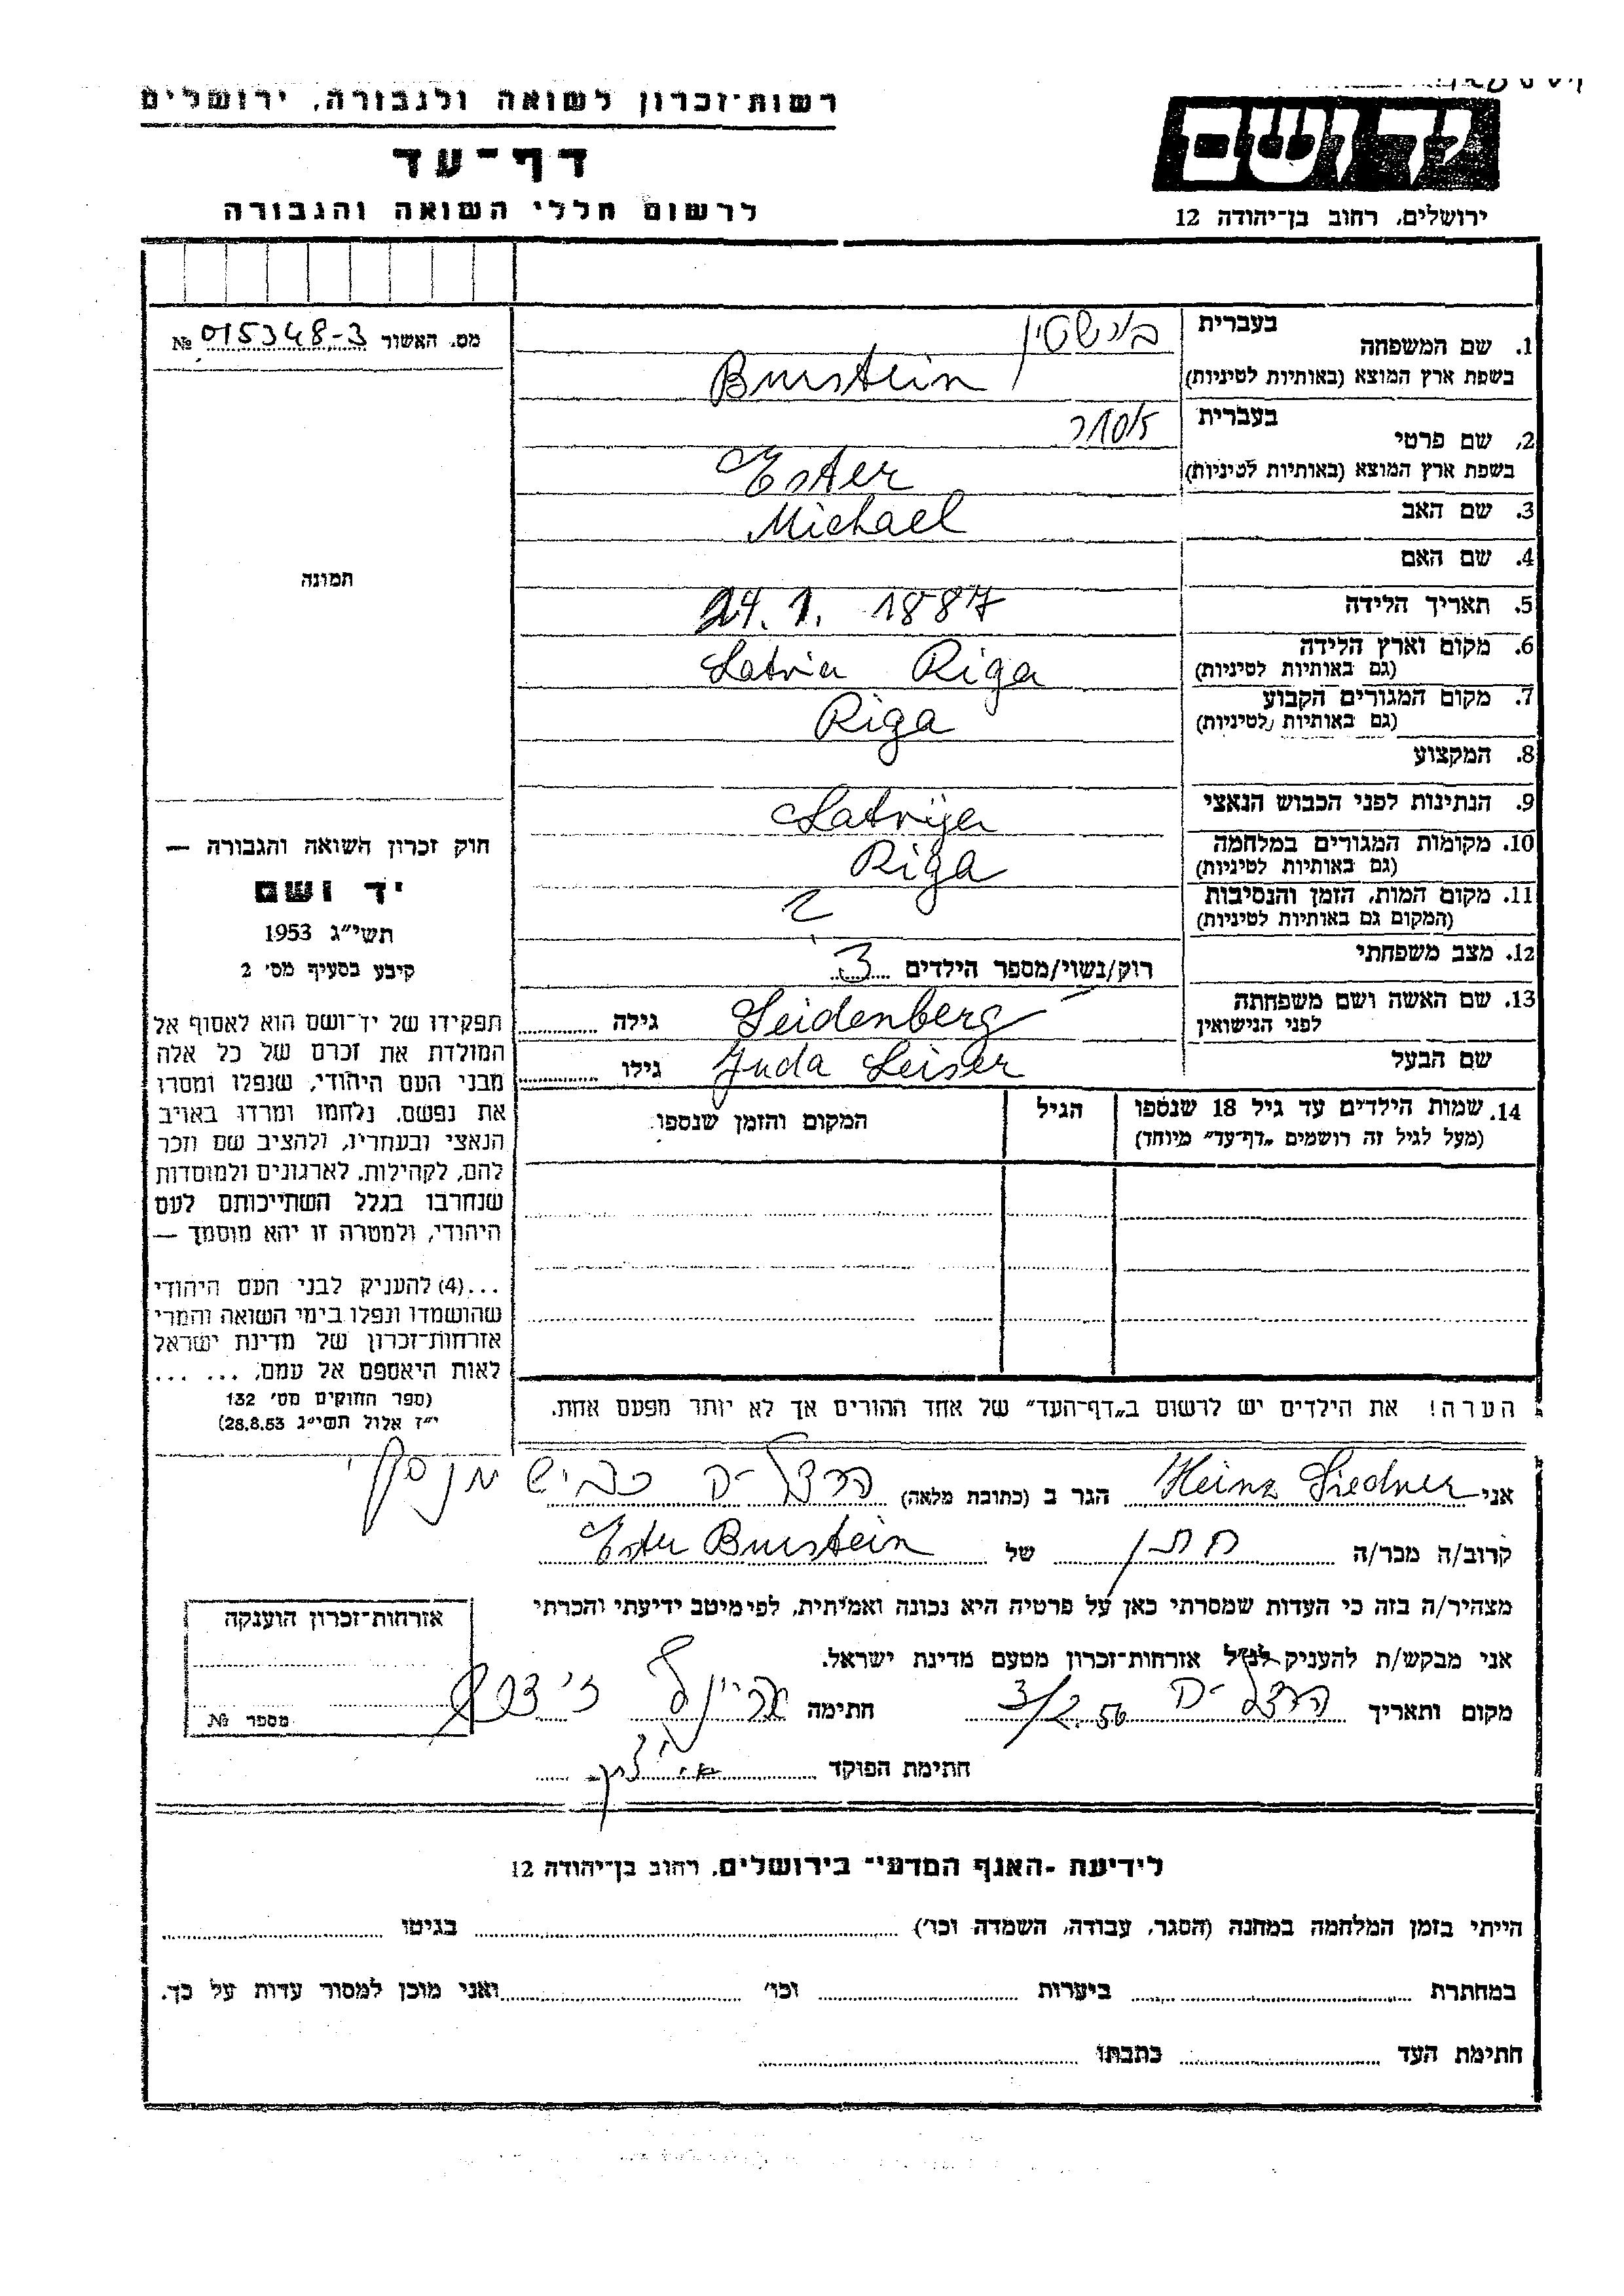 רשות־זכרון לשואה ולגבורה, ירושלים
דף־עד
לרשום חללי השואה והגבורה
יד ושם
ירושלים, רחוב בן־יהודה 12
מס. האשור 015348-3 №
1. שם המשפחה
בעברית בורשטין
בשפת ארץ המוצא (באותיות לטיניות) Burstein
2. שם פרטי
בעברית אסתר
בשפת ארץ המוצא (באותיות לטיניות) Ester
3. שם האב Michael
4. שם האם
5. תאריך הלידה 24. 1. 1887
6. מקום וארץ הלידה
(גם באותיות לטיניות) Latvia Riga
7. מקום המגורים הקבוע
(גם באותיות לטיניות) Riga
8. המקצוע
9. הנתינות לפני הכבוש הנאצי Latvija
10. מקומות המגורים במלחמה
(גם באותיות לטיניות) Riga
11. מקום המות, הזמן והנסיבות
(המקום גם באותיות לטיניות) ?
12. מצב משפחתי רוק/נשוי/מספר הילדים 3
13. שם האשה ושם משפחתה
לפני הנישואין Seidenberg גילה
שם הבעל Juda Leiser גילו
14. שמות הילדים עד גיל 18 שנספו הגיל המקום והזמן שנספו
(מעל לגיל זה רושמים „דף־עד” מיוחד)
הערה! את הילדים יש לרשום ב„דף־העד” של אחד ההורים אך לא יותר מפעם אחת.
תמונה
חוק זכרון השואה והגבורה —
יד ושם
תשי״ג 1953
קיבע בסעיף מס׳ 2
תפקידו של יד־ושם הוא לאסוף אל
המולדת את זכרם של כל אלה
מבני העם היהודי, שנפלו ומסרו
את נפשם, נלחמו ומרדו באויב
הנאצי ובעוזריו, ולהציב שם וזכר
להם, לקהילות, לארגונים ולמוסדות
שנחרבו בגלל השתייכותם לעם
היהודי, ולמטרה זו יהא מוסמך —
...(4) להעניק לבני העם היהודי
שהושמדו ונפלו בימי השואה והמרי
אזרחות־זכרון של מדינת ישראל
לאות היאספם אל עמם, ... ...
(ספר החוקים מס׳ 132
י״ז אלול תשי״ג 28.8.53)
אני Heinz Liedner הגר ב (כתובת מלאה) הרצליה כביש
קרוב/ה מכר/ה חתן של Ester Burstein
מצהיר/ה בזה כי העדות שמסרתי כאן על פרטיה היא נכונה ואמיתית, לפי מיטב ידיעתי והכרתי
אני מבקש/ת להעניק לנ״ל אזרחות־זכרון מטעם מדינת ישראל.
מקום ותאריך הרצליה 3/2.56 חתימה
חתימת הפוקד
אזרחות־זכרון הוענקה
מספר №
לידיעת ־האגף המדעי־ בירושלים, רחוב בן־יהודה 12
הייתי בזמן המלחמה במחנה (הסגר, עבודה, השמדה וכו׳) בגיטו
במחתרת ביערות וכו׳ ואני מוכן למסור עדות על כך.
חתימת העד כתבתו